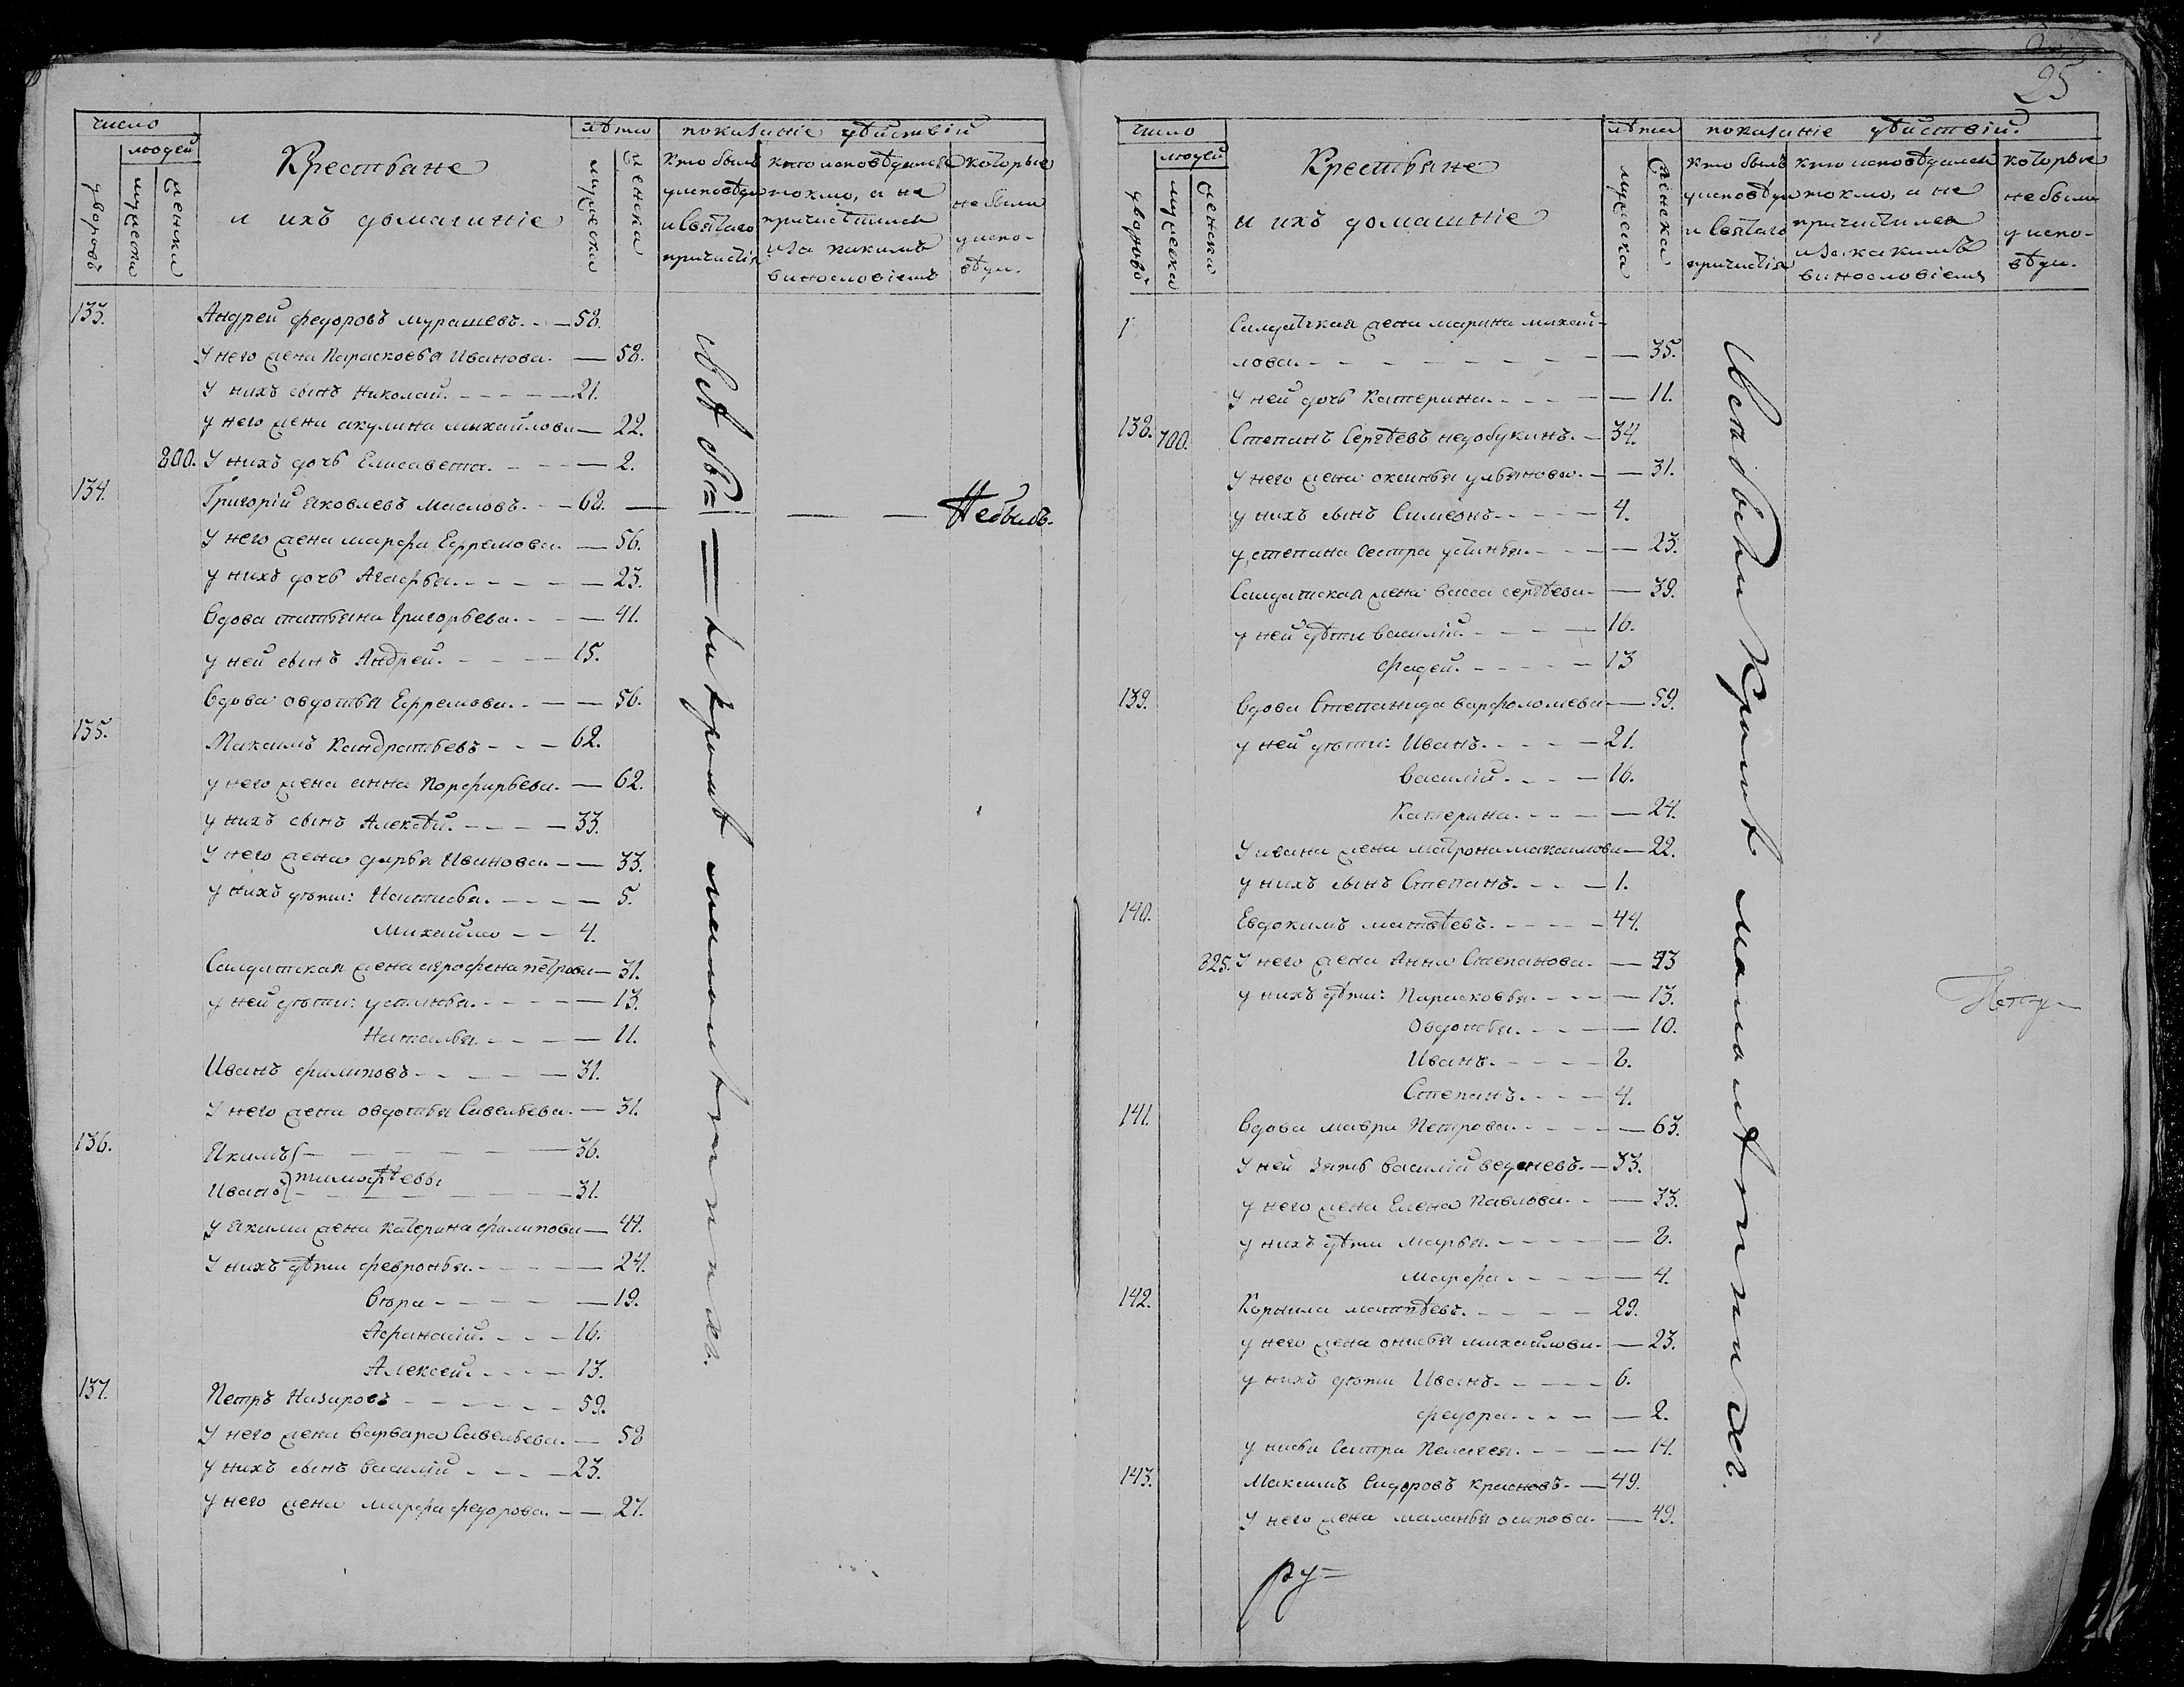 число
людей
дворовъ
мужеска
женска
Крестьяне
и ихъ домашніе
лѣта
мужеска
женска
показаніе дѣйствій
кто былъ у исповѣди и Святаго причастія
кто исповѣдался токмо, а не причастился и за какимъ винословіемъ
которые не были у исповѣди.
133. Андрей Федоровъ Мурашевъ. 58.
у него жена Параскоевья Иванова. 58.
у нихъ сынъ Николай. 21.
у него жена акулина михайлова 22.
800. у нихъ дочь Елисавета. 2.
134. Григорій Яковлевъ Масловъ. 62. Небылъ.
у него жена марфа Ефремова. 56.
у нихъ дочь Агафья. 23.
Вдова татьяна Григорьева. 41.
у ней сынъ Андрей. 15.
Вдова овдотья Ефремова. 56.
135. Максимъ Кандратьевъ 62.
у него жена анна Порфирьева. 62.
у нихъ сынъ Алексѣй. 33.
у него жена дарья Иванова. 33.
у нихъ дѣти: Настасья. 5.
Михайло 4.
Салдатская жена аграфена петрова 31.
у ней дѣти: устинья. 13.
Наталья. 11.
Иванъ филиповъ 31.
у него жена овдотья Савельева. 31.
136. Якимъ 36.
тимофѣевы
Иванъ 31.
у Якима жена Катерина филипова 44.
у нихъ дѣти февронья. 24.
Вѣра 19.
Афанасій. 16.
Алексей. 13.
137. Петръ Назаровъ 59.
у него жена Варвара Савельева. 58
у нихъ сынъ Василій 23.
у него жена марфа федорова. 27.
25
число
людей
дворовъ
мужеска
женска
Крестьяне
и ихъ домашніе
лѣта
мужеска
женска
показаніе дѣйствій.
кто былъ у исповѣди и Святаго причастія
кто исповѣдался токмо, а не причастился и за какимъ винословіемъ
которые не были у исповѣди.
1 Салдатская жена марина михай-
лова. 35.
у ней дочь Катерина. 11.
138. 700. Степанъ Сергѣевъ недобукинъ. 34.
у него жена оксинья ульянова. 31.
у нихъ сынъ Симеонъ 4.
у степана сестра устинья. 23.
Салдатская жена васса сергѣева 39.
у ней дѣти василій. 16.
фадей. 13
139. Вдова Степанида варфоломеева 59.
у ней дѣти: Иванъ. 21.
Василій. 16.
Катерина. 24.
у ивана жена матрона максимова 22.
у нихъ сынъ Степанъ. 1.
140. Евдокимъ матвѣевъ. 44.
825. у него жена Анна Степанова. 43
у нихъ дѣти: Парасковья. 13.
Овдотья. 10.
Иванъ. 8.
Степанъ. 4.
141. Вдова мавра Петрова. 63.
у ней зять Василій веденевъ. 33.
у него жена Елена Павлова. 33.
у нихъ дѣти марья. 8.
марфа. 4.
142. Корнила матвѣевъ. 29.
у него жена онисья михайлова. 23.
у нихъ дѣти Иванъ. 6.
федора. 2.
у него Сестра Пелагея. 14.
143. Максимъ Сидоровъ красновъ. 49.
у него жена маланья осипова. 49.
Всѣ были кромѣ малолѣтнихъ.
ру=